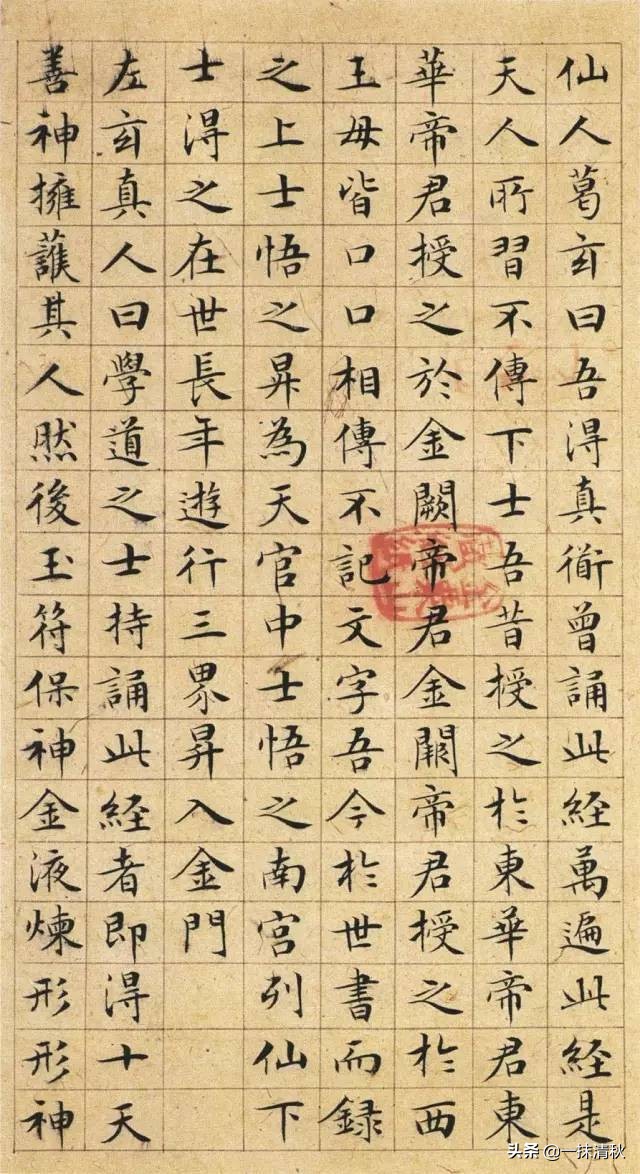 仙人葛玄曰吾得真衜曾誦此経萬遍此経是
天人所習不傳下士吾昔授之於東華帝君東
華帝君授之於金闕帝君金闕帝君授之於西
王母皆口口相傳不記文字吾今於世書而録
之上士悟之昇為天官中士悟之南宮列仙下
士得之在世長年遊行三界昇入金門
左玄真人曰學道之士持誦此経者即得十天
善神擁護其人然後玉符保神金液煉形形神
头条 @一抹清秋